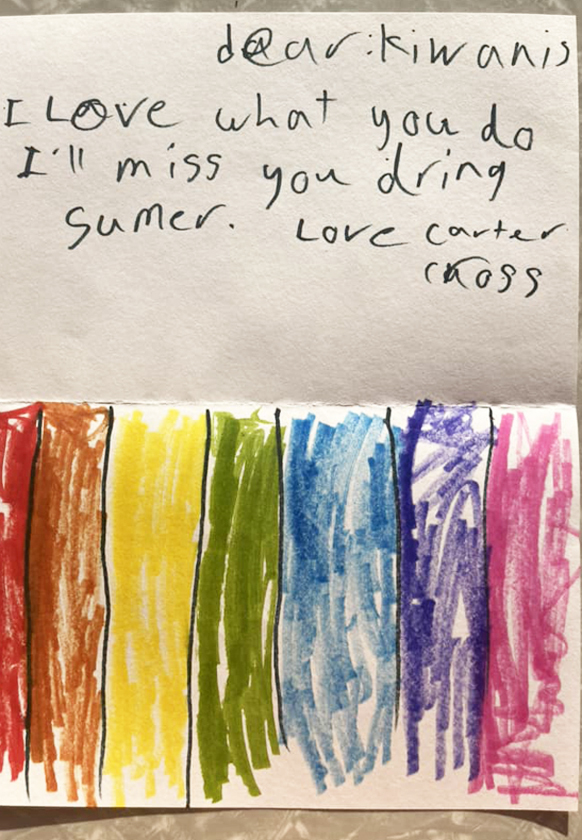 dear: kiwanis
I Love what you do
I'll miss you dring
sumer. Love carter
cross